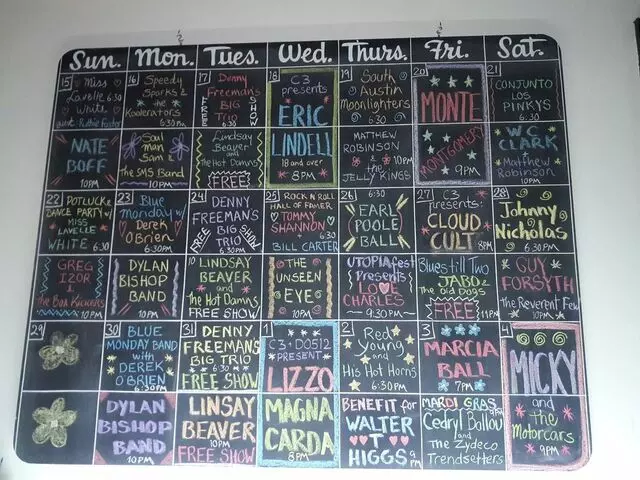 Sun. Mon. Tues. Wed. Thurs. Fri. Sat.
15
Miss
Lavelle 6:30
White
Nate
Boff
10PM
16
Speedy
Sparks &
the
Koolerators
6:30PM
Soul
man
Sam &
The SMS Band
10PM
17
Denny
Freeman's
BIG
Trio
FREE
SHOW
6:30
Lindsay
Beaver
and
The Hot Damns
FREE!
18
C3
presents
ERIC
LINDELL
18 and over
8PM
19
South
Austin
Moonlighters
6:30
MATTHEW
ROBINSON
& the 10PM
JELLY KINGS
20
MONTE
MONTGOMERY
9PM
21
CONJUNTO
LOS
PINKYS
6:30
W.C.
CLARK
Matthew
Robinson
10PM
22
POTLUCK &
DANCE PARTY w/
MISS
LAVELLE
WHITE 6:30
GREG
IZOR
& the Box Kickers
10PM
23
Blue
Monday w/
Derek
O'Brien
6:30PM
DYLAN
BISHOP
BAND
10PM
24
DENNY
FREEMAN'S
BIG
TRIO
FREE
SHOW
6:30
10
LINDSAY
BEAVER
and
the Hot Damns
FREE SHOW
25
ROCK N ROLL
HALL OF FAMER
TOMMY
SHANNON
6:30
BILL CARTER
THE
UNSEEN
EYE
10PM
26
6:30
EARL
POOLE
BALL
UTOPIAfest
Presents
LOVE
CHARLES
9:30PM
27
C3
Presents:
CLOUD
CULT
8PM
Blues till Two
JABO &
The Old Dogs
FREE
11PM
28
Johnny
Nicholas
6:30PM
GUY
FORSYTH
The Reverent Few
10PM
29
30
BLUE
MONDAY BAND
with
DEREK
O'BRIEN
6:30PM
DYLAN
BISHOP
BAND
10PM
31
DENNY
FREEMAN'S
BIG TRIO
6:30
FREE SHOW
LINSAY
BEAVER
10PM
FREE SHOW
1
C3 + DO512
PRESENT
LIZZO
MAGNA
CARDA
8PM
2
Red
Young
and
His Hot Horns
6:30PM
BENEFIT for
WALTER
T
HIGGS
9PM
3
MARCIA
BALL
7PM
MARDI GRAS
Cedryl Ballou
and
The Zydeco
Trendsetters
4
MICKY
and
the
Motorcars
9PM